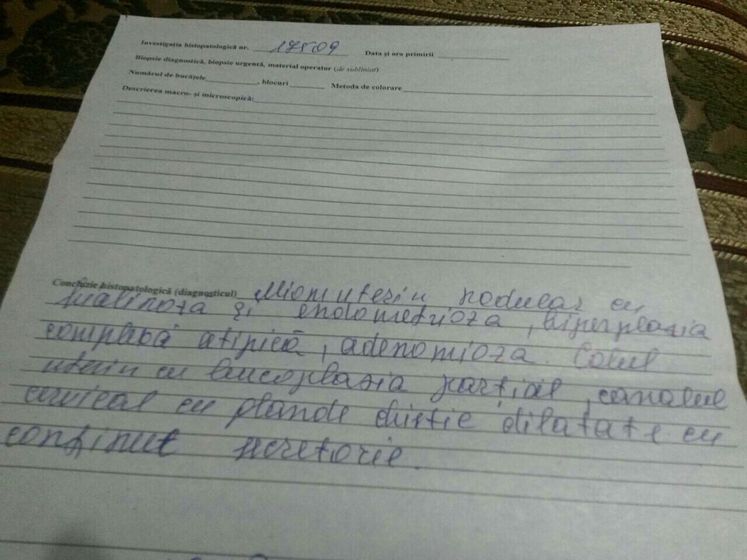 Investigația histopatologică nr. 17509 Data și ora primirii
Biopsie diagnostică, biopsie urgentă, material operator (de subliniat)
Numărul de bucățele, blocuri Metoda de colorare
Descrierea macro- și microscopică:
Concluzie histopatologică (diagnosticul) Miom uterin nodular cu
hialinoza și endometrioza, hiperplasia
complexă atipică, adenomioza. Colul
uterin cu leucoplasia parțial, canalul
cervical cu glande chistic dilatate cu
conținut secretorie.